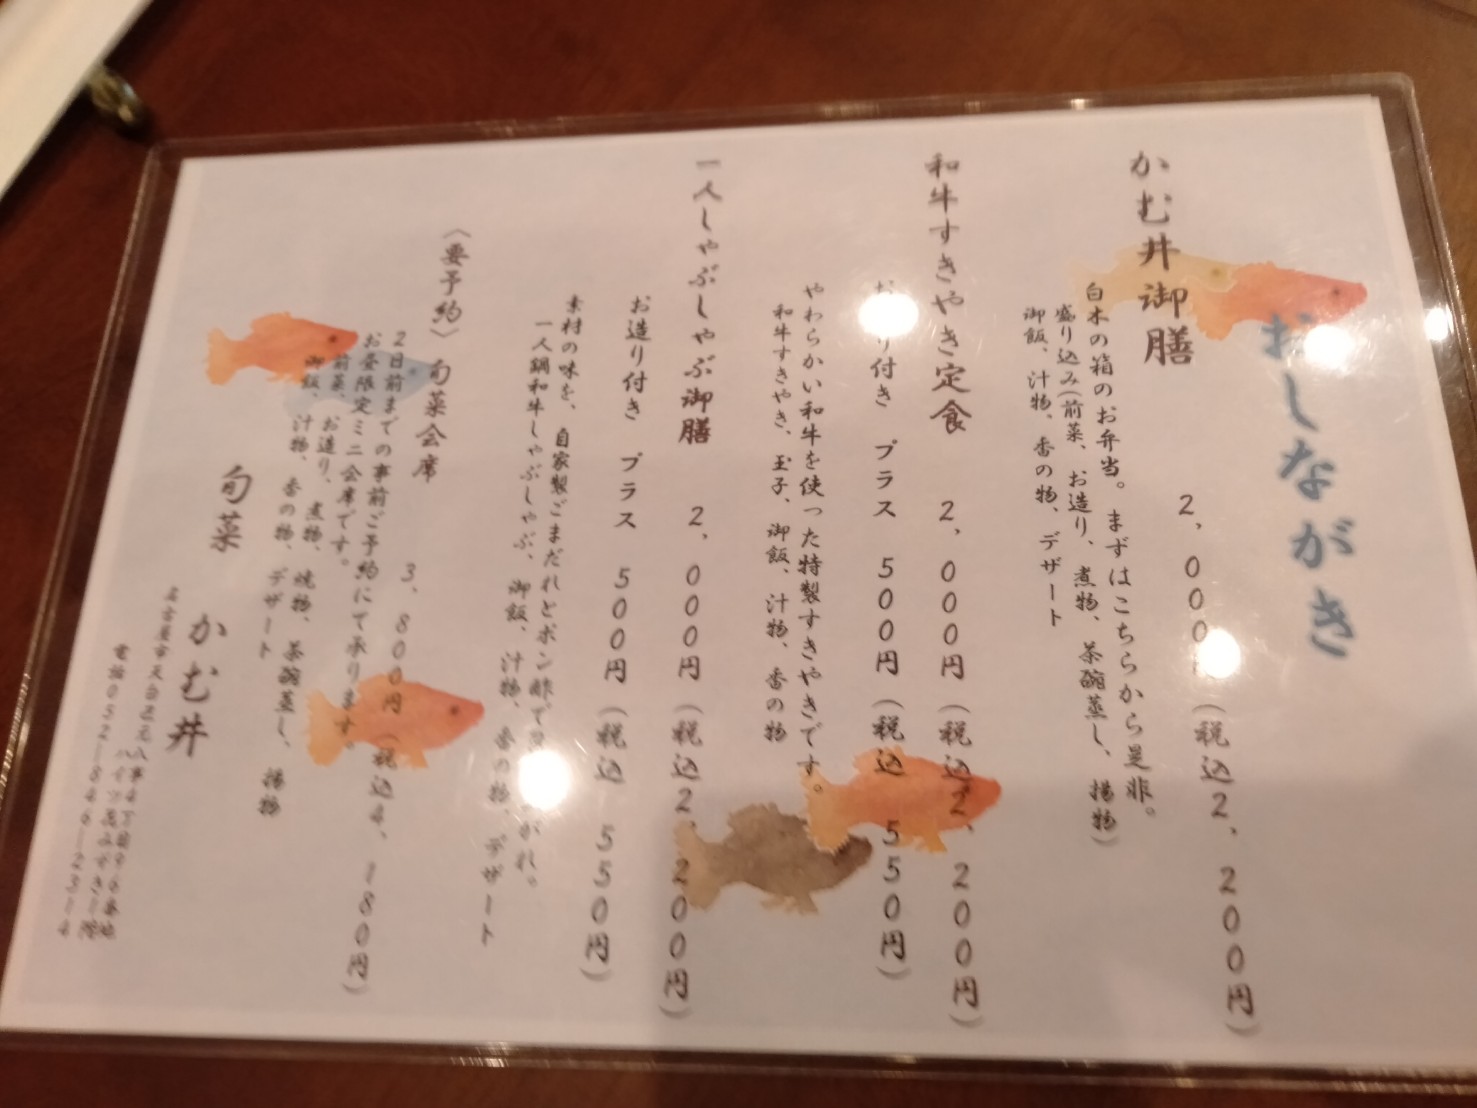 おしながき
かむ井御膳 2,000円(税込2,200円)
白木の箱のお弁当。まずはこちらから是非。
盛り込み(前菜、お造り、煮物、茶碗蒸し、揚物)
御飯、汁物、香の物、デザート
和牛すきやき定食 2,000円(税込2,200円)
お造り付き プラス 500円(税込 550円)
やわらかい和牛を使った特製すきやきです。
和牛すきやき、玉子、御飯、汁物、香の物
一人しゃぶしゃぶ御膳 2,000円(税込2,200円)
お造り付き プラス 500円(税込 550円)
素材の味を、自家製ごまだれとポン酢で
一人鍋和牛しゃぶしゃぶ、御飯、汁物、香の物、デザート
〈要予約〉旬菜会席 3,800円(税込4,180円)
2日前までの事前ご予約にて承ります。
お昼限定ミニ会席です。
前菜、お造り、煮物、焼物、茶碗蒸し、揚物
御飯、汁物、香の物、デザート
旬菜 かむ井
名古屋市天白区元八事4丁目96番地
電話052-846-2314